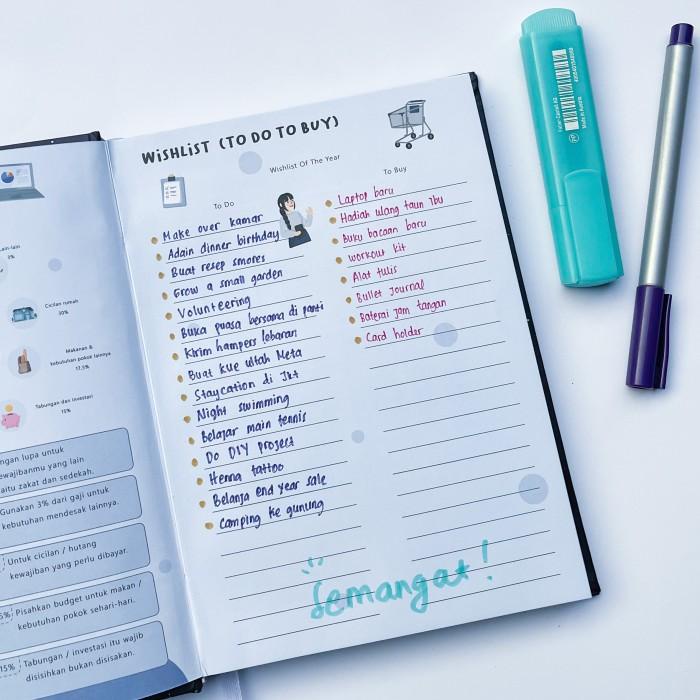 WISHLIST (TO DO TO BUY)
Wishlist Of The Year
To Do
Make over kamar
Adain dinner birthday
Buat resep smores
Grow a small garden
Volunteering
Buka puasa bersama di panti
Kirim hampers lebaran
Buat kue ultah Meta
Staycation di Jkt
Night swimming
Belajar main tennis
Do DIY project
Henna tattoo
Belanja end year sale
Camping ke gunung
To Buy
Laptop baru
Hadiah ulang taun Ibu
Buku bacaan baru
workout kit
Alat tulis
Bullet Journal
Baterai jam tangan
Card holder
Semangat!
Cicilan rumah
30%
Makanan &
kebutuhan pokok lainnya
Tabungan dan investasi
15%
ngan lupa untuk
ewajibanmu yang lain
aitu zakat dan sedekah.
Gunakan 3% dari gaji untuk
kebutuhan mendesak lainnya.
Untuk cicilan / hutang
kewajiban yang perlu dibayar.
Pisahkan budget untuk makan /
kebutuhan pokok sehari-hari.
15%
Tabungan / investasi itu wajib
disisihkan bukan disisakan.
Made in Austria